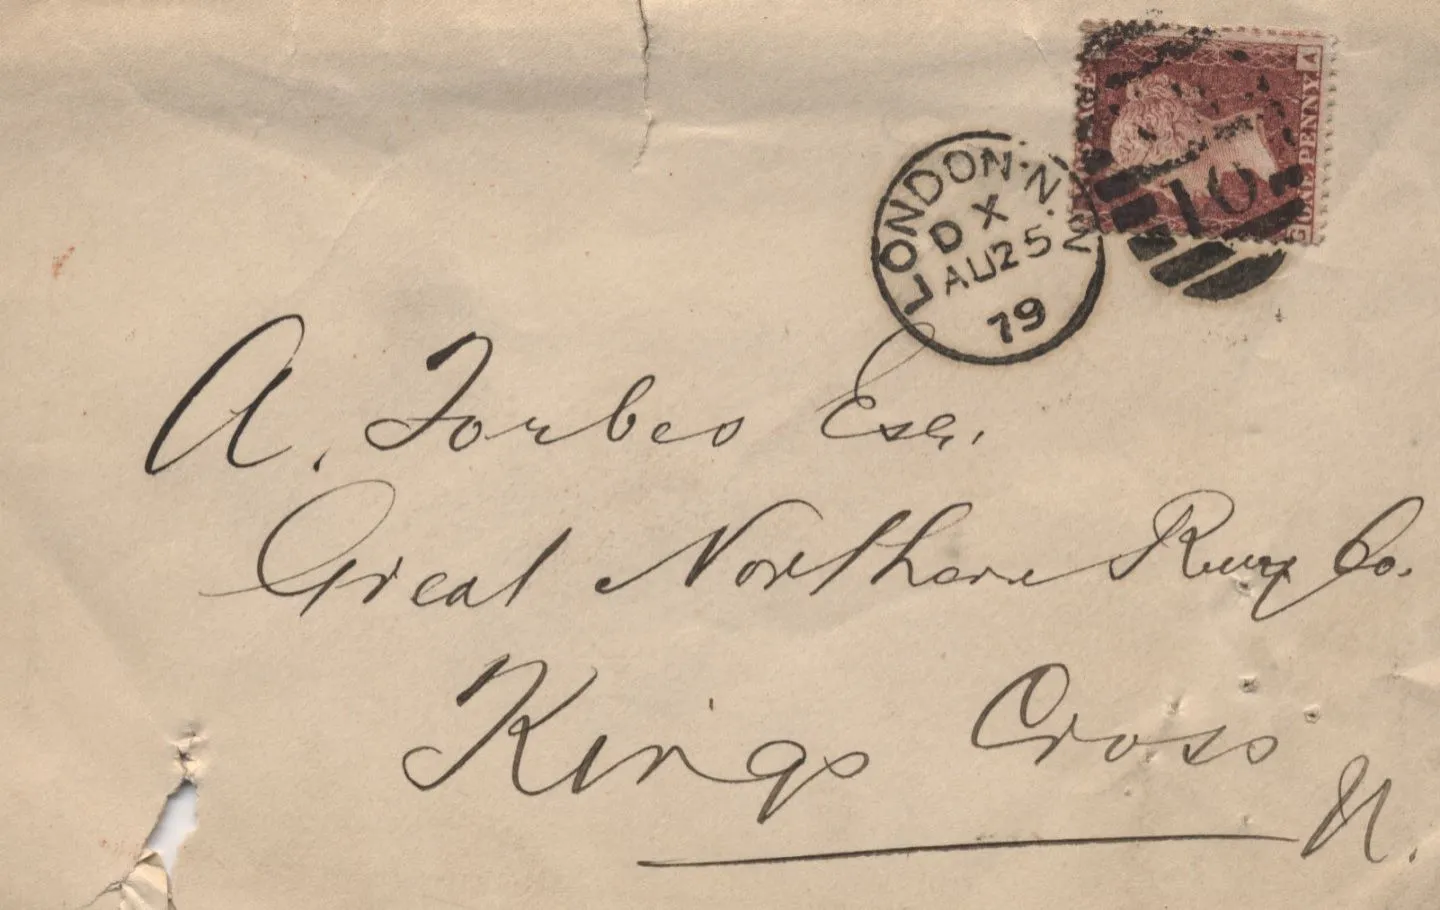 ONE PENNY
A
G
LONDON·N.W
DX
AU25
79
10
A. Forbes Esq.
Great Northern Rwy Co.
Kings Cross
N.